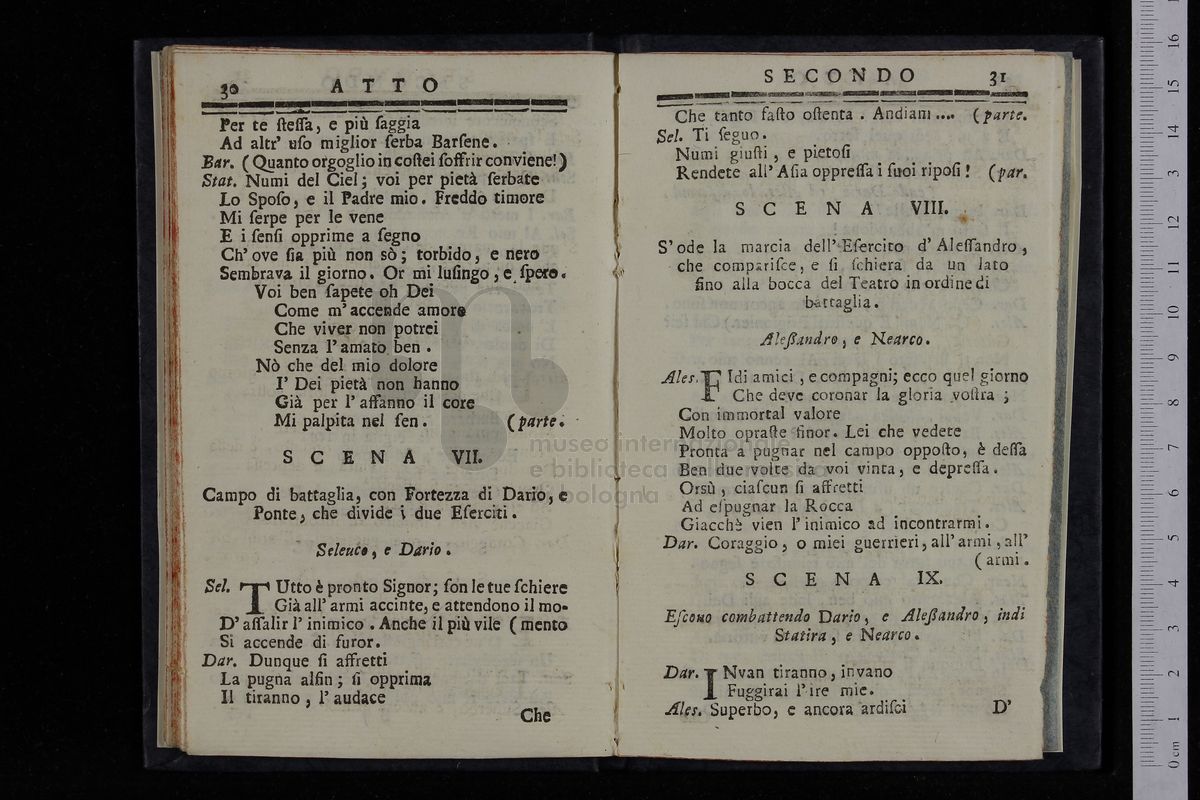 30 ATTO
Per te ſteſſa, e più ſaggia
Ad altr' uſo miglior ſerba Barſene.
Bar. (Quanto orgoglio in coſtei ſoffrir conviene!)
Stat. Numi del Ciel; voi per pietà ſerbate
Lo Spoſo, e il Padre mio. Freddo timore
Mi ſerpe per le vene
E i ſenſi opprime a ſegno
Ch' ove ſia più non sò; torbido, e nero
Sembrava il giorno. Or mi luſingo, e ſpero.
Voi ben ſapete oh Dei
Come m' accende amore
Che viver non potrei
Senza l' amato ben.
Nò che del mio dolore
I' Dei pietà non hanno
Già per l' affanno il core
Mi palpita nel ſen. (parte.
SCENA VII.
Campo di battaglia, con Fortezza di Dario, e
Ponte, che divide i due Eſerciti.
Seleuco, e Dario.
Sel. TUtto è pronto Signor; ſon le tue ſchiere
Già all' armi accinte, e attendono il mo-
D' aſſalir l' inimico. Anche il più vile (mento
Si accende di furor.
Dar. Dunque ſi affretti
La pugna alfin; ſi opprima
Il tiranno, l' audace
Che
SECONDO 31
Che tanto faſto oſtenta. Andiam .... (parte.
Sel. Ti ſeguo.
Numi giuſti, e pietoſi
Rendete all' Aſia oppreſſa i ſuoi ripoſi! (par.
SCENA VIII.
S' ode la marcia dell' Eſercito d' Aleſſandro,
che compariſce, e ſi ſchiera da un lato
fino alla bocca del Teatro in ordine di
battaglia.
Aleßandro, e Nearco.
Ales. FIdi amici, e compagni; ecco quel giorno
Che deve coronar la gloria voſtra;
Con immortal valore
Molto opraſte finor. Lei che vedete
Pronta a pugnar nel campo oppoſto, è deſſa
Ben due volte da voi vinta, e depreſſa.
Orsù, ciaſcun ſi affretti
Ad eſpugnar la Rocca
Giacchè vien l' inimico ad incontrarmi.
Dar. Coraggio, o miei guerrieri, all' armi, all'
(armi.
SCENA IX.
Eſcono combattendo Dario, e Aleßandro, indi
Statira, e Nearco.
Dar. INvan tiranno, invano
Fuggirai l' ire mie.
Ales. Superbo, e ancora ardiſci
D'
museo internazionale
e biblioteca della musica
di bologna
0 cm 1 2 3 4 5 6 7 8 9 10 11 12 13 14 15 16